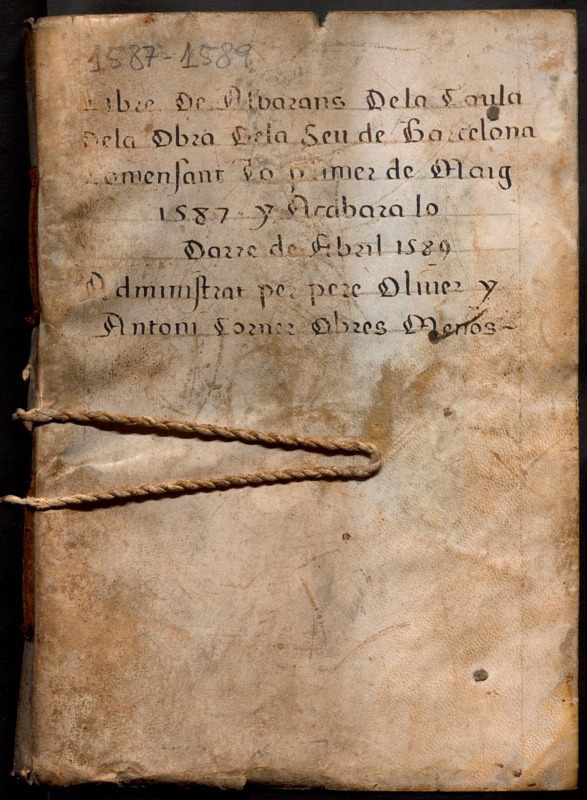 1587-1589
Libre De Albarans Dela Taula
Dela Obra Dela Seu de Barcelona
Comensant Lo primer de Maig
1587 y Acabara lo
Darre de Abril 1589
Administrat per pere Oliuer y
Antoni Corner Obres Menos